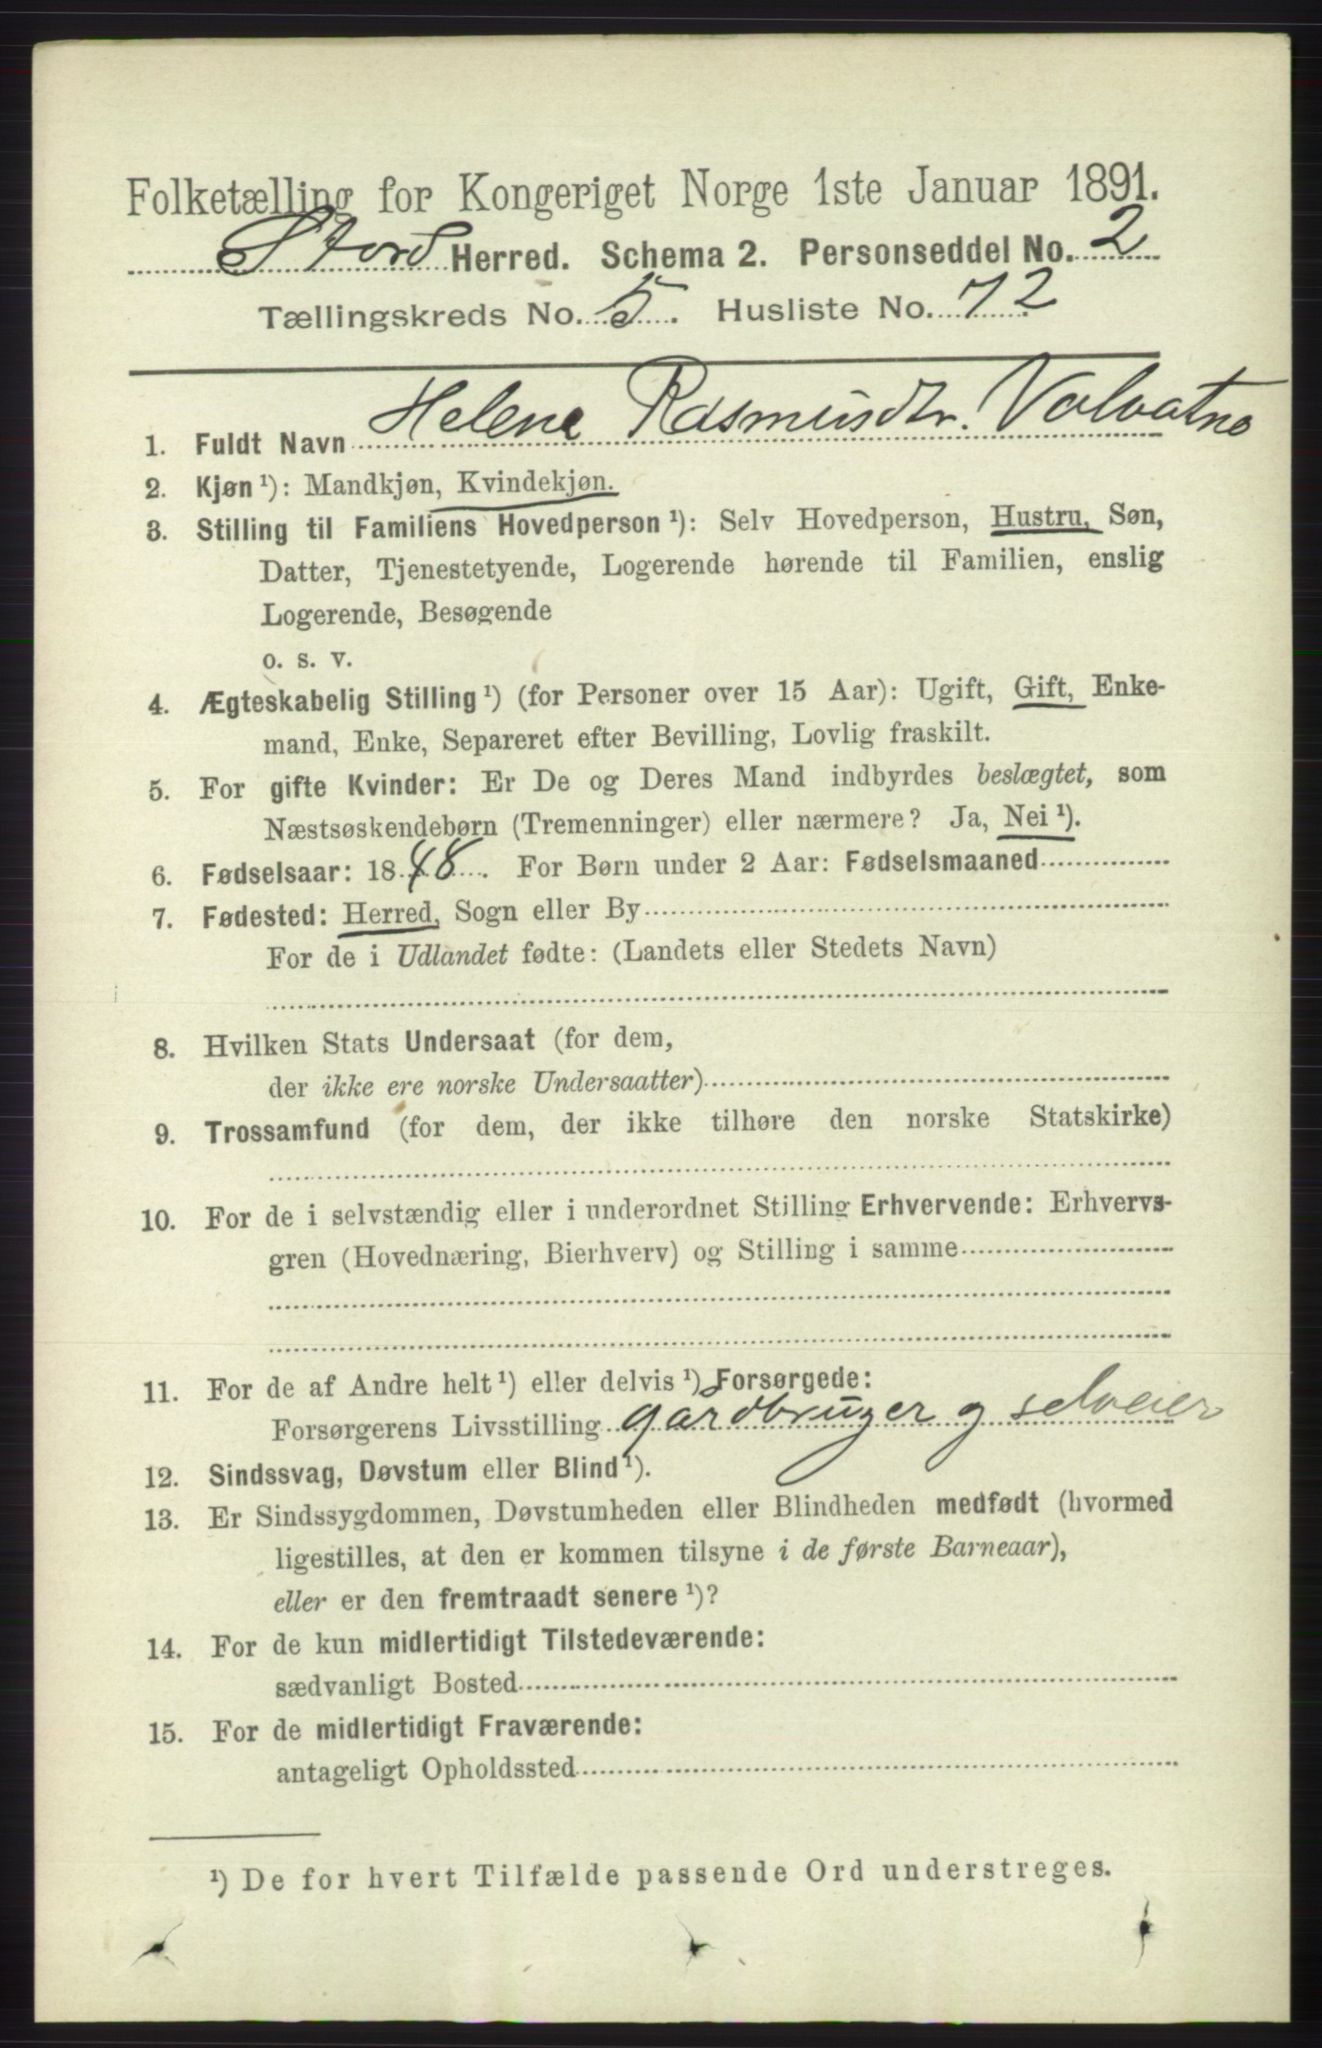 Folketælling for Kongeriget Norge 1ste Januar 1891.
Stord Herred. Schema 2. Personseddel No. 2
Tællingskreds No. 5. Husliste No. 72
1. Fuldt Navn Helene Rasmusdtr. Valvatne
2. Kjøn ¹): Mandkjøn, Kvindekjøn.
3. Stilling til Familiens Hovedperson ¹): Selv Hovedperson, Hustru, Søn,
Datter, Tjenestetyende, Logerende hørende til Familien, enslig
Logerende, Besøgende
o. s. v.
4. Ægteskabelig Stilling ¹) (for Personer over 15 Aar): Ugift, Gift, Enke-
mand, Enke, Separeret efter Bevilling, Lovlig fraskilt.
5. For gifte Kvinder: Er De og Deres Mand indbyrdes beslægtet, som
Næstsøskendebørn (Tremenninger) eller nærmere? Ja, Nei ¹).
6. Fødselsaar: 1848. For Børn under 2 Aar: Fødselsmaaned
7. Fødested: Herred, Sogn eller By
For de i Udlandet fødte: (Landets eller Stedets Navn)
8. Hvilken Stats Undersaat (for dem,
der ikke ere norske Undersaatter)
9. Trossamfund (for dem, der ikke tilhøre den norske Statskirke)
10. For de i selvstændig eller i underordnet Stilling Erhvervende: Erhvervs-
gren (Hovednæring, Bierhverv) og Stilling i samme
11. For de af Andre helt ¹) eller delvis ¹) Forsørgede:
Forsørgerens Livsstilling gårdbruger og selveier
12. Sindssvag, Døvstum eller Blind ¹).
13. Er Sindssygdommen, Døvstumheden eller Blindheden medfødt (hvormed
ligestilles, at den er kommen tilsyne i de første Barneaar),
eller er den fremtraadt senere ¹)?
14. For de kun midlertidigt Tilstedeværende:
sædvanligt Bosted
15. For de midlertidigt Fraværende:
antageligt Opholdssted
¹) De for hvert Tilfælde passende Ord understreges.